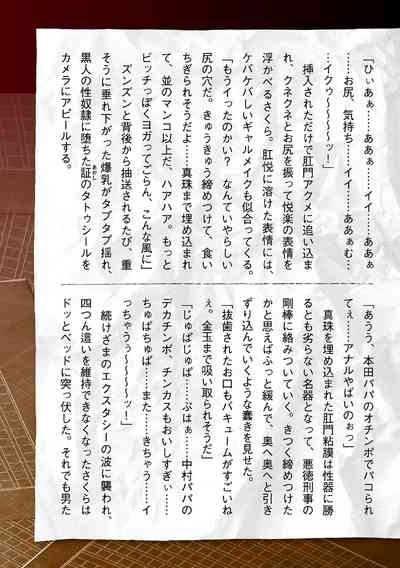 「ひぃあぁ……ああぁ　イイ……ああぁ
……お尻、気持ち……イイ……ああぁむ…
…イクゥ～～～～ッ！」
　挿入されただけで肛門アクメに追い込ま
れ、クネクネとお尻を振って悦楽の表情を
浮かべるさくら。肛悦に溶けた表情には、
ケバケバしいギャルメイクも似合ってくる。
「もうイったのかい？　なんていやらしい
尻の穴だ。きゅうきゅう締めつけて、食い
ちぎられそうだよ……真珠まで埋め込まれ
て、並のマンコ以上だ、ハアハア。もっと
ビッチっぽくヨガってごらん、こんな風に」
　ズンズンと背後から抽送されるたび、重
そうに垂れ下がった爆乳がタプタプ揺れ、
黒人の性奴隷に堕ちた証のタトゥシールを
あかし
カメラにアピールする。
「あうう、本田パパのオチンポでパコられ
てぇ……アナルやばいのぉっ」
　真珠を埋め込まれた肛門粘膜は性器に勝
るとも劣らない名器となって、悪徳刑事の
剛棒に絡みついていく。きつく締めつけた
かと思えばふっと緩んで、奥へ奥へと引き
ずり込んでいくような蠢きを見せた。
「抜歯されたお口もバキュームがすごいね
ぇ。金玉まで吸い取られそうだ」
「じゅぱじゅぱ……ぷはぁ……中村パパの
デカチンポ、チンカスもおいしすぎぃ……
ちゅぱちゅぱ……また……きちゃう……イ
っちゃうぅ～～～～ッ！」
　続けざまのエクスタシーの波に襲われ、
四つん這いを維持できなくなったさくらは
ドッとベッドに突っ伏した。それでも男た